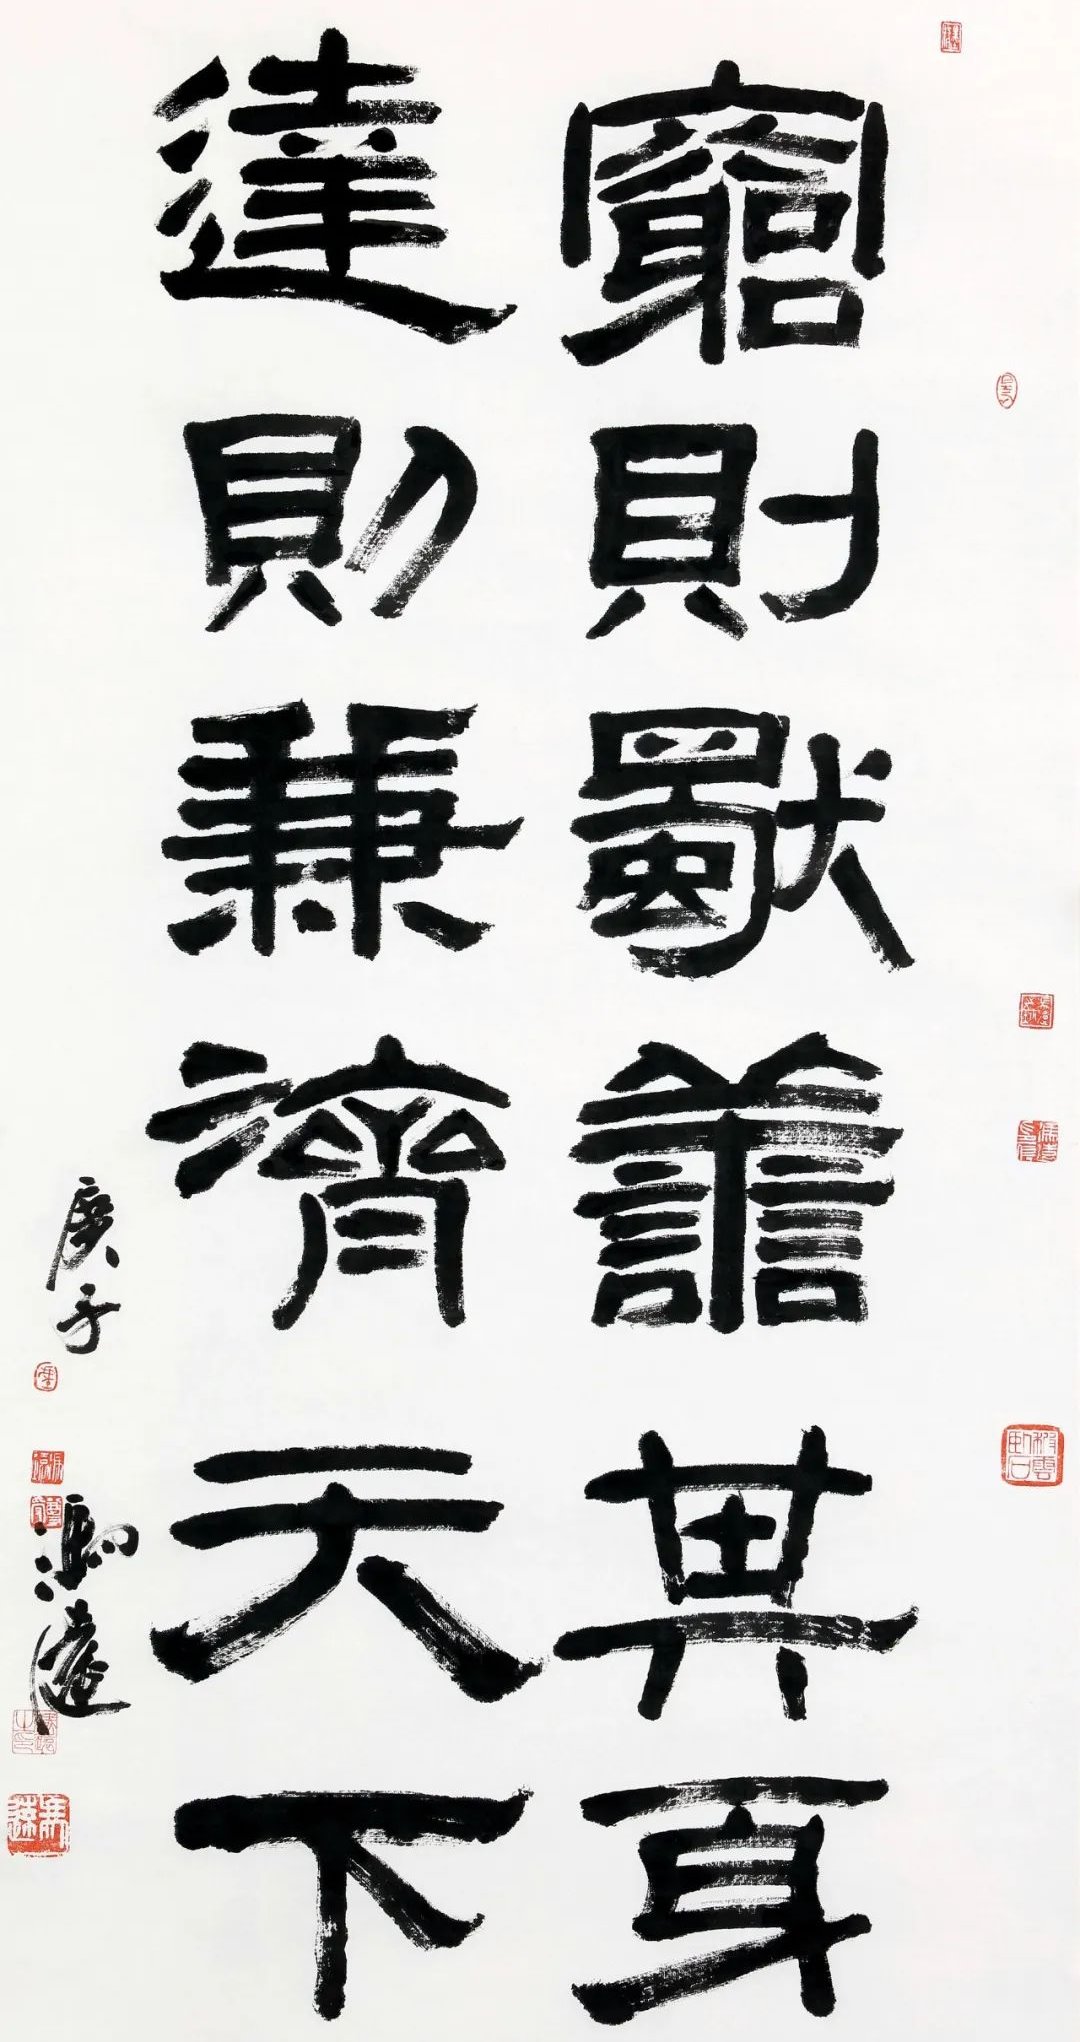 窮則獨善其身
達則兼濟天下
庚子
馮遠